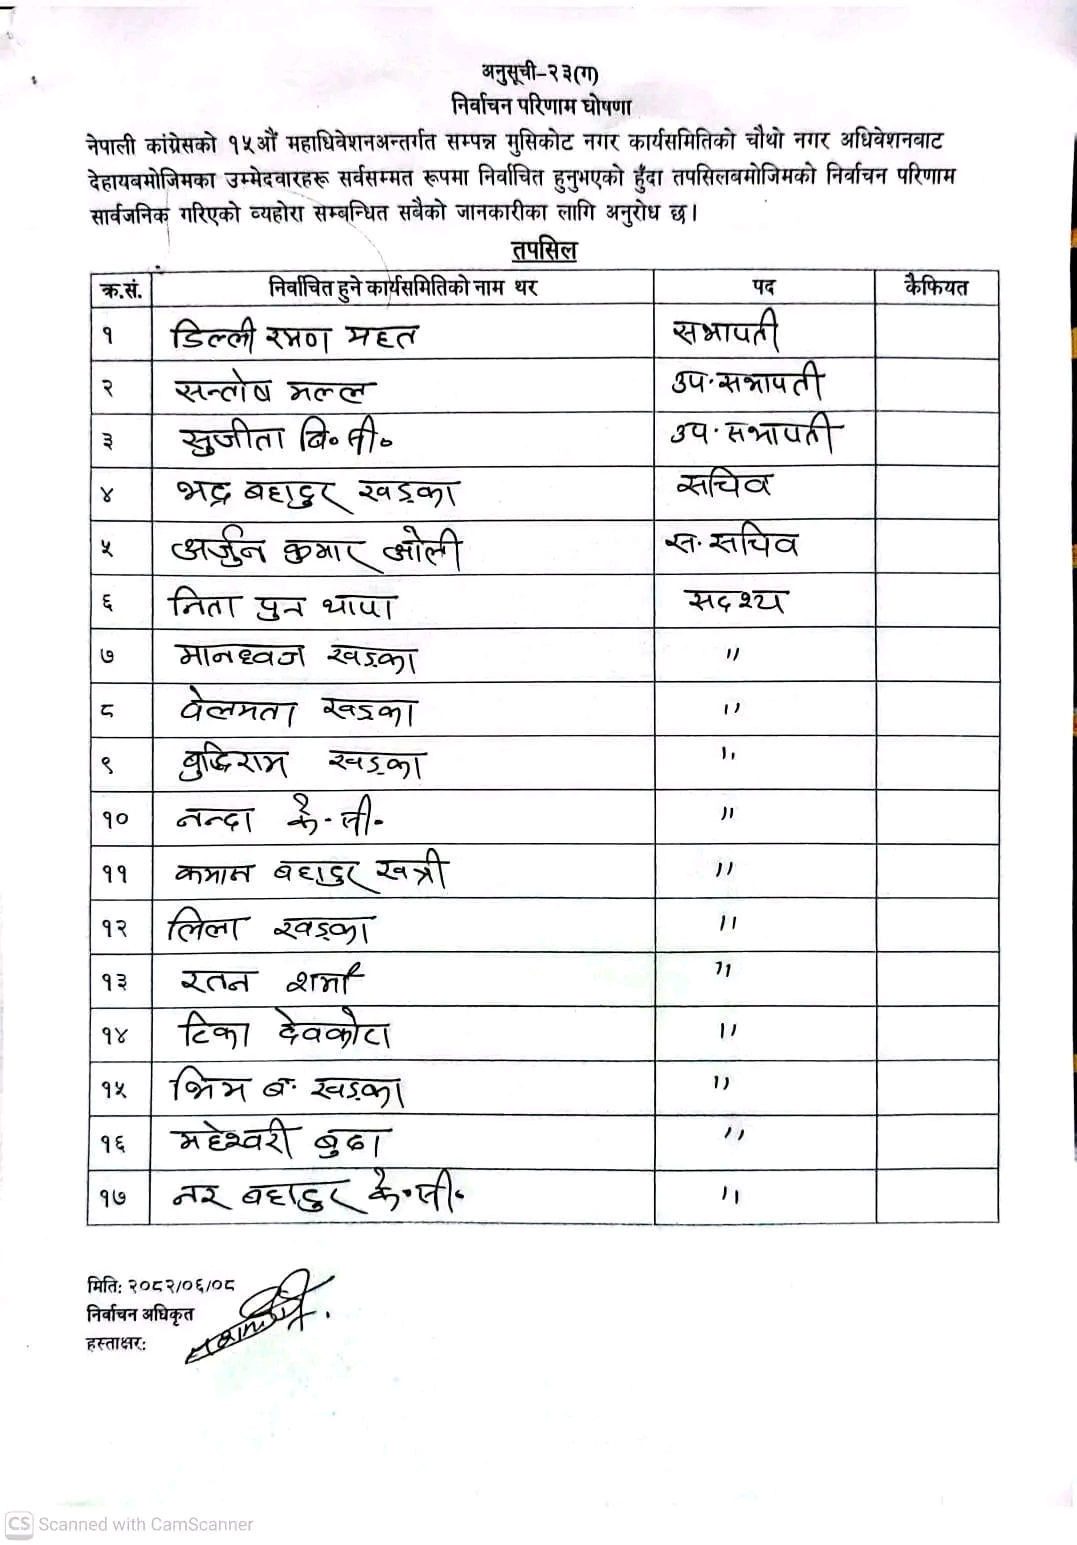 अनुसूची-२३(ग)
निर्वाचन परिणाम घोषणा
नेपाली कांग्रेसको १५औं महाधिवेशनअन्तर्गत सम्पन्न मुसिकोट नगर कार्यसमितिको चौथो नगर अधिवेशनबाट
देहायबमोजिमका उम्मेदवारहरू सर्वसम्मत रूपमा निर्वाचित हुनुभएको हुँदा तपसिलबमोजिमको निर्वाचन परिणाम
सार्वजनिक गरिएको व्यहोरा सम्बन्धित सबैको जानकारीका लागि अनुरोध छ।
तपसिल
क्र.सं. निर्वाचित हुने कार्यसमितिको नाम थर पद कैफियत
१ डिल्ली रमण महत सभापती
२ सन्तोष मल्ल उप.सभापती
३ सुजीता बि॰सी॰ उप.सभापती
४ भद्र बहादुर खड्का सचिव
५ अर्जुन कुमार ओली स.सचिव
६ निता पुन थापा सदश्य
७ मानध्वज खड्का "
८ वेलमता खड्का "
९ बुद्धिराम खड्का "
१० नन्दा के.सी. "
११ कमान बहादुर खत्री "
१२ लिला खड्का "
१३ रतन शर्मा "
१४ टिका देवकोटा "
१५ भिम ब. खड्का "
१६ महेश्वरी बुढा "
१७ नर बहादुर के.सी. "
मिति: २०८२/०६/०८
निर्वाचन अधिकृत
हस्ताक्षर:
CS Scanned with CamScanner